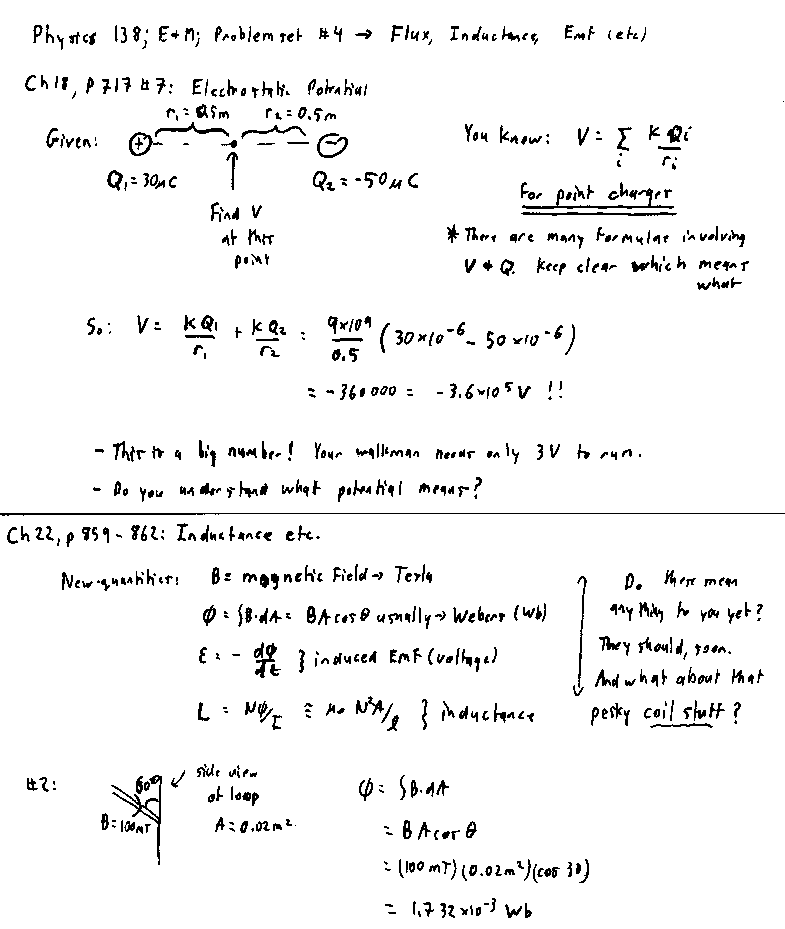 Physics 138; E+M; Problem set #4 → Flux, Inductance, Emf (etc)
Ch 18, P 717 #7: Electrostatic Potential
r₁ = 0.5m r₂ = 0.5m
Given: + −
Q₁ = 30μC Q₂ = -50μC
Find V
at this
point
You know: V = Σᵢ kQᵢ/rᵢ
For point charges
* There are many formulas involving
V + Q. Keep clear which means
what
So: V = kQ₁/r₁ + kQ₂/r₂ = 9×10⁹/0.5 (30×10⁻⁶ - 50×10⁻⁶)
= -360000 = -3.6×10⁵ V !!
- This is a big number! Your walkman needs only 3V to run.
- Do you understand what potential means?
Ch 22, p 859 - 862: Inductance etc.
New quantities: B = magnetic Field → Tesla
Φ = ∫B·dA = BA cos θ usually → Webers (Wb)
ε = - dΦ/dt } induced Emf (voltage)
L = NΦ/I ≅ μ₀ N²A/l } inductance
Do these mean
anything to you yet?
They should, soon.
And what about that
pesky coil stuff?
#2:
60°
B = 100mT
side view
of loop
A = 0.02m²
Φ = ∫B·dA
= BA cos θ
= (100 mT)(0.02m²)(cos 30)
= 1.732 ×10⁻³ Wb